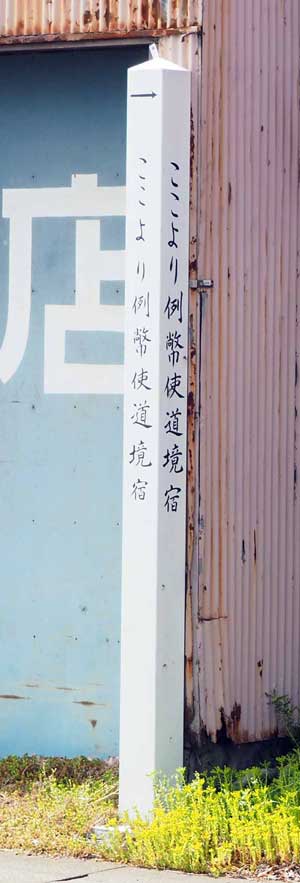 →
ここより例幣使道境宿
ここより例幣使道境宿
店